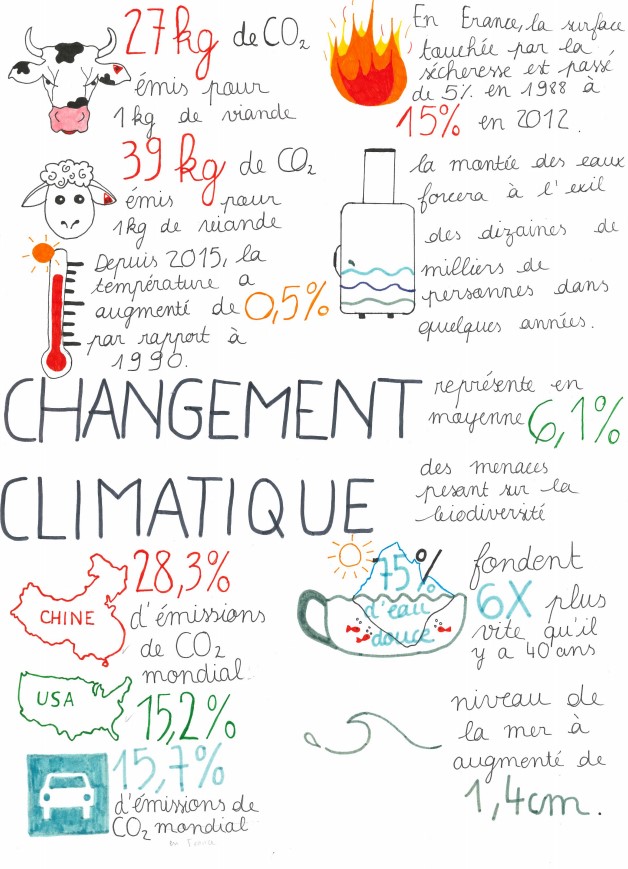 27kg de CO₂
émis pour
1kg de viande
39kg de CO₂
émis pour
1kg de viande
Depuis 2015, la
température a
augmenté de 0,5%
par rapport à
1990.
En France, la surface
touchée par la
sécheresse est passé
de 5% en 1988 à
15% en 2012.
la montée des eaux
forcera à l'exil
des dizaines de
milliers de
personnes dans
quelques années.
CHANGEMENT
CLIMATIQUE
représente en
moyenne 6,1%
des menaces
pesant sur la
biodiversité
CHINE
28,3%
d'émissions
de CO₂
mondial
USA
15,2%
15,7%
d'émissions de
CO₂ mondial
75%
d'eau
douce
fondent
6X plus
vite qu'il
y a 40 ans
niveau de
la mer à
augmenté de
1,4cm.